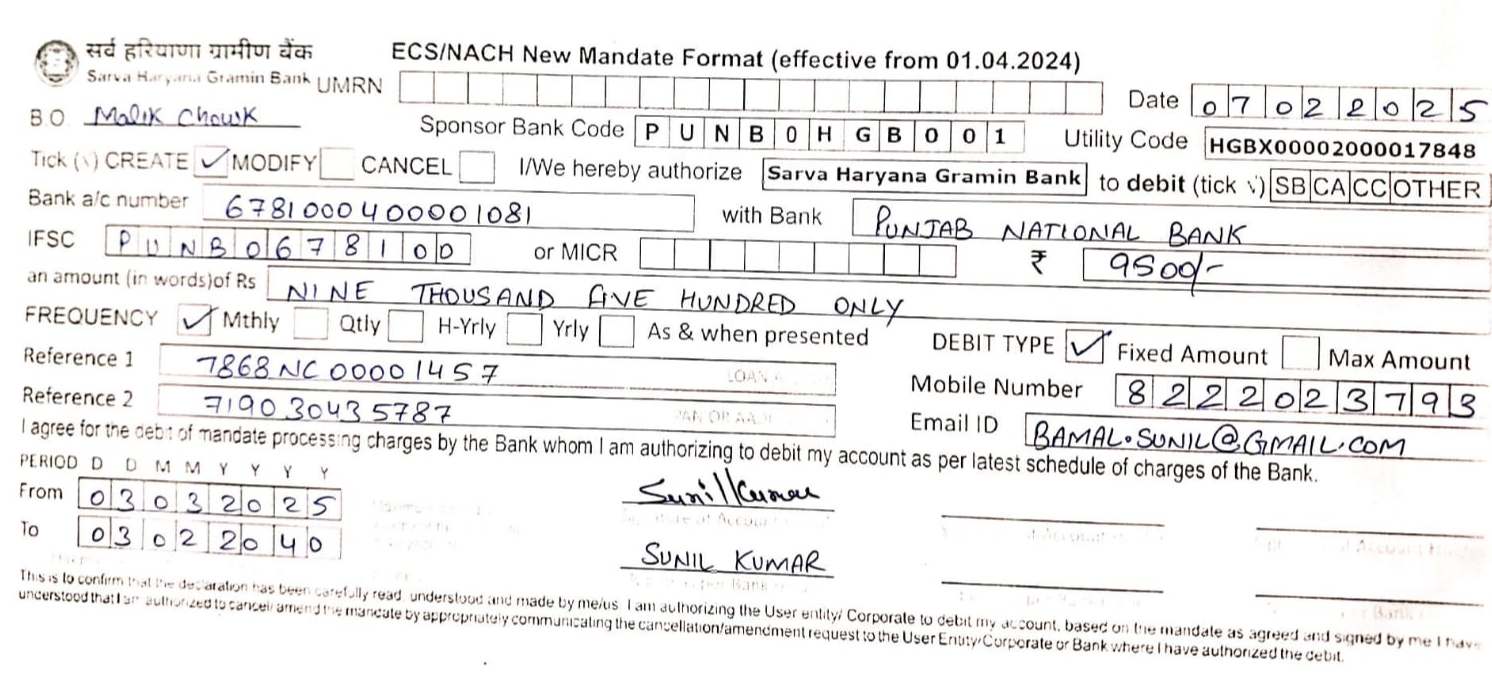 सर्व हरियाणा ग्रामीण बैंक
Sarva Haryana Gramin Bank
ECS/NACH New Mandate Format (effective from 01.04.2024)
UMRN
Date 07022025
B.O Malik Chowk
Sponsor Bank Code PUNB0HGB001
Utility Code HGBX00002000017848
Tick (√) CREATE ✓ MODIFY CANCEL I/We hereby authorize Sarva Haryana Gramin Bank to debit (tick √) SB CA CC OTHER
Bank a/c number 6781000400001081 with Bank PUNJAB NATIONAL BANK
IFSC PUNB0678100 or MICR ₹ 9500/-
an amount (in words)of Rs NINE THOUSAND FIVE HUNDRED ONLY
FREQUENCY ✓ Mthly Qtly H-Yrly Yrly As & when presented DEBIT TYPE ✓ Fixed Amount Max Amount
Reference 1 7868NC00001457 LOAN
Mobile Number 8222023793
Reference 2 719030435787 PAN OR
Email ID BAMAL.SUNIL@GMAIL.COM
I agree for the debit of mandate processing charges by the Bank whom I am authorizing to debit my account as per latest schedule of charges of the Bank.
PERIOD D D M M Y Y Y Y
From 03032025
To 03022040
Sunil Kumar
SUNIL KUMAR
This is to confirm that the declaration has been carefully read, understood and made by me/us. I am authorizing the User entity/ Corporate to debit my account, based on the mandate as agreed and signed by me I have
understood that I am authorized to cancel/ amend the mandate by appropriately communicating the cancellation/amendment request to the User Entity/Corporate or Bank where I have authorized the debit.